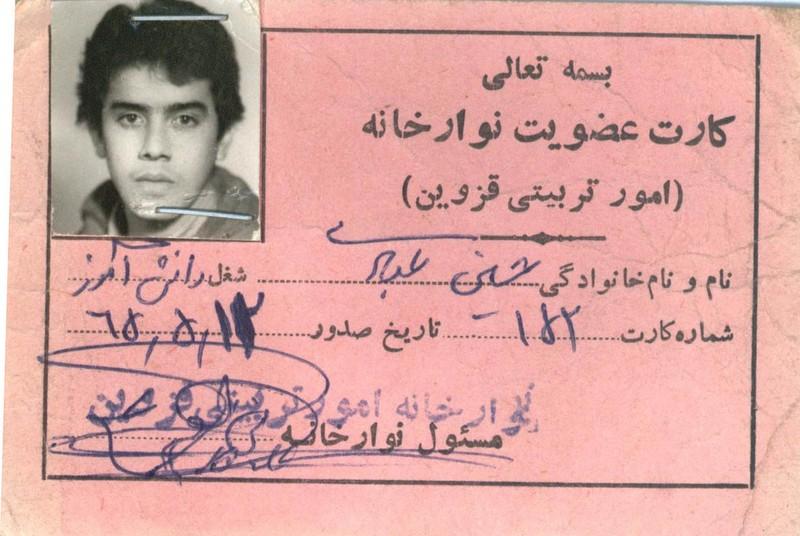 بسمه تعالی
کارت عضویت نوارخانه
(امور تربیتی قزوین)
نام و نام‌خانوادگی شغل دانش آموز
شماره‌کارت ۱۵۲ تاریخ صدور ۶۵٫۵٫۱۲
نوارخانه امور تربیتی قزوین
مسئول نوارخانه